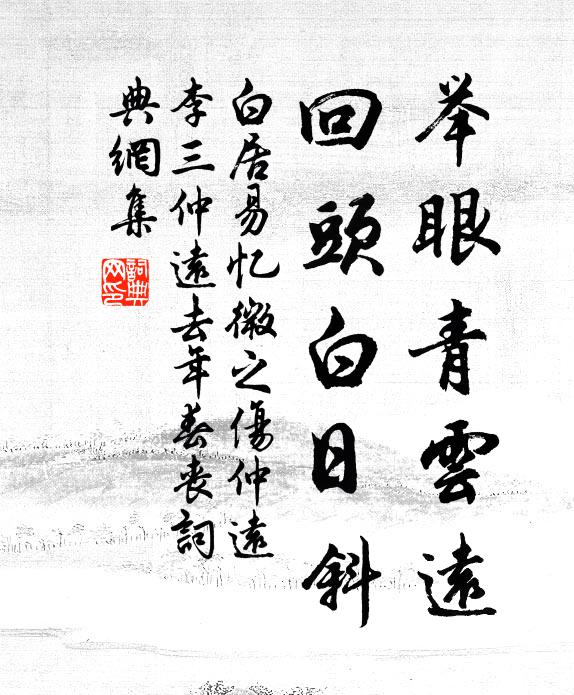 举眼青雲遠
回頭白日斜
白居易忆微之傷仲遠
李三仲遠去年春喪詞
典網集
詞典
网印